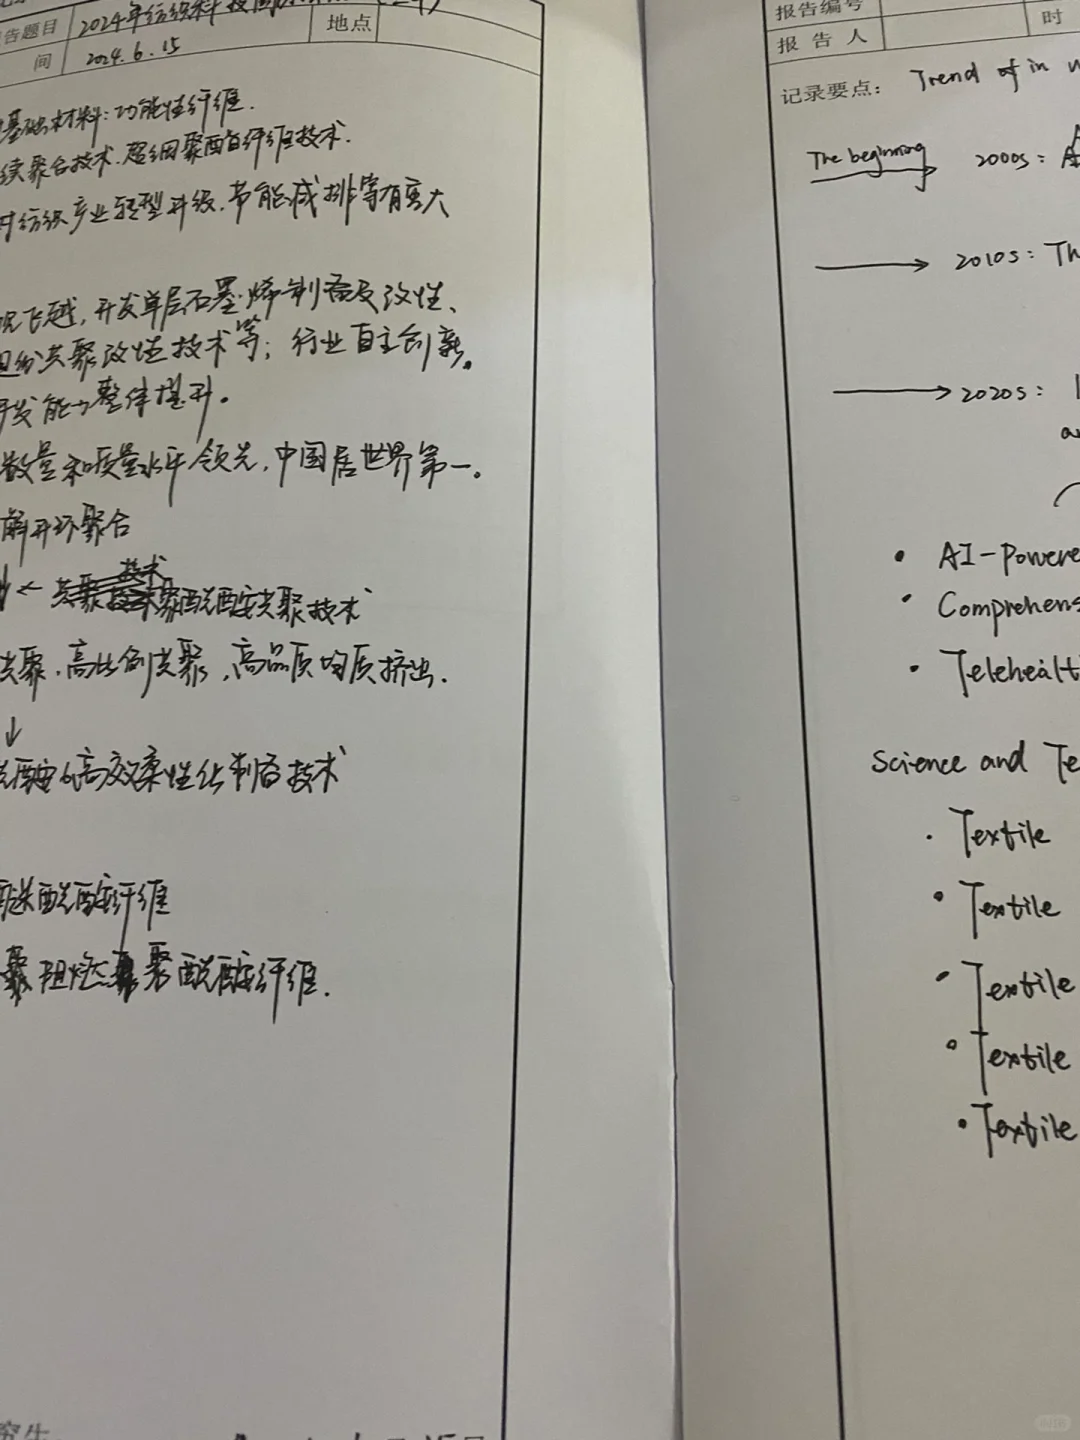 告题目 2024年纺织科技
地点
间 2024.6.15
基础材料:功能性纤维.
续聚合技术.超细聚酯纤维技术.
对纺织产业转型升级.节能减排等有重大
飞越,开发单层石墨烯制备及改性、
组份共聚改性技术等;行业自主创新。
开发能力整体提升。
数量和质量水平领先,中国居世界第一。
解开环聚合
← 技术
聚酰胺共聚技术
共聚.高比例共聚,高品质均质挤出.
↓
酰胺6高效柔性化制备技术
酰胺纤维
阻燃聚酰胺纤维.
究生
报告编号
报告人 时
记录要点: Trend of in
The beginning → 2000s:
→ 2010s: Th
→ 2020s:
• AI-Powere
• Comprehens
• Telehealt
Science and Te
• Textile
• Textile
• Textile
• Textile
• Textile